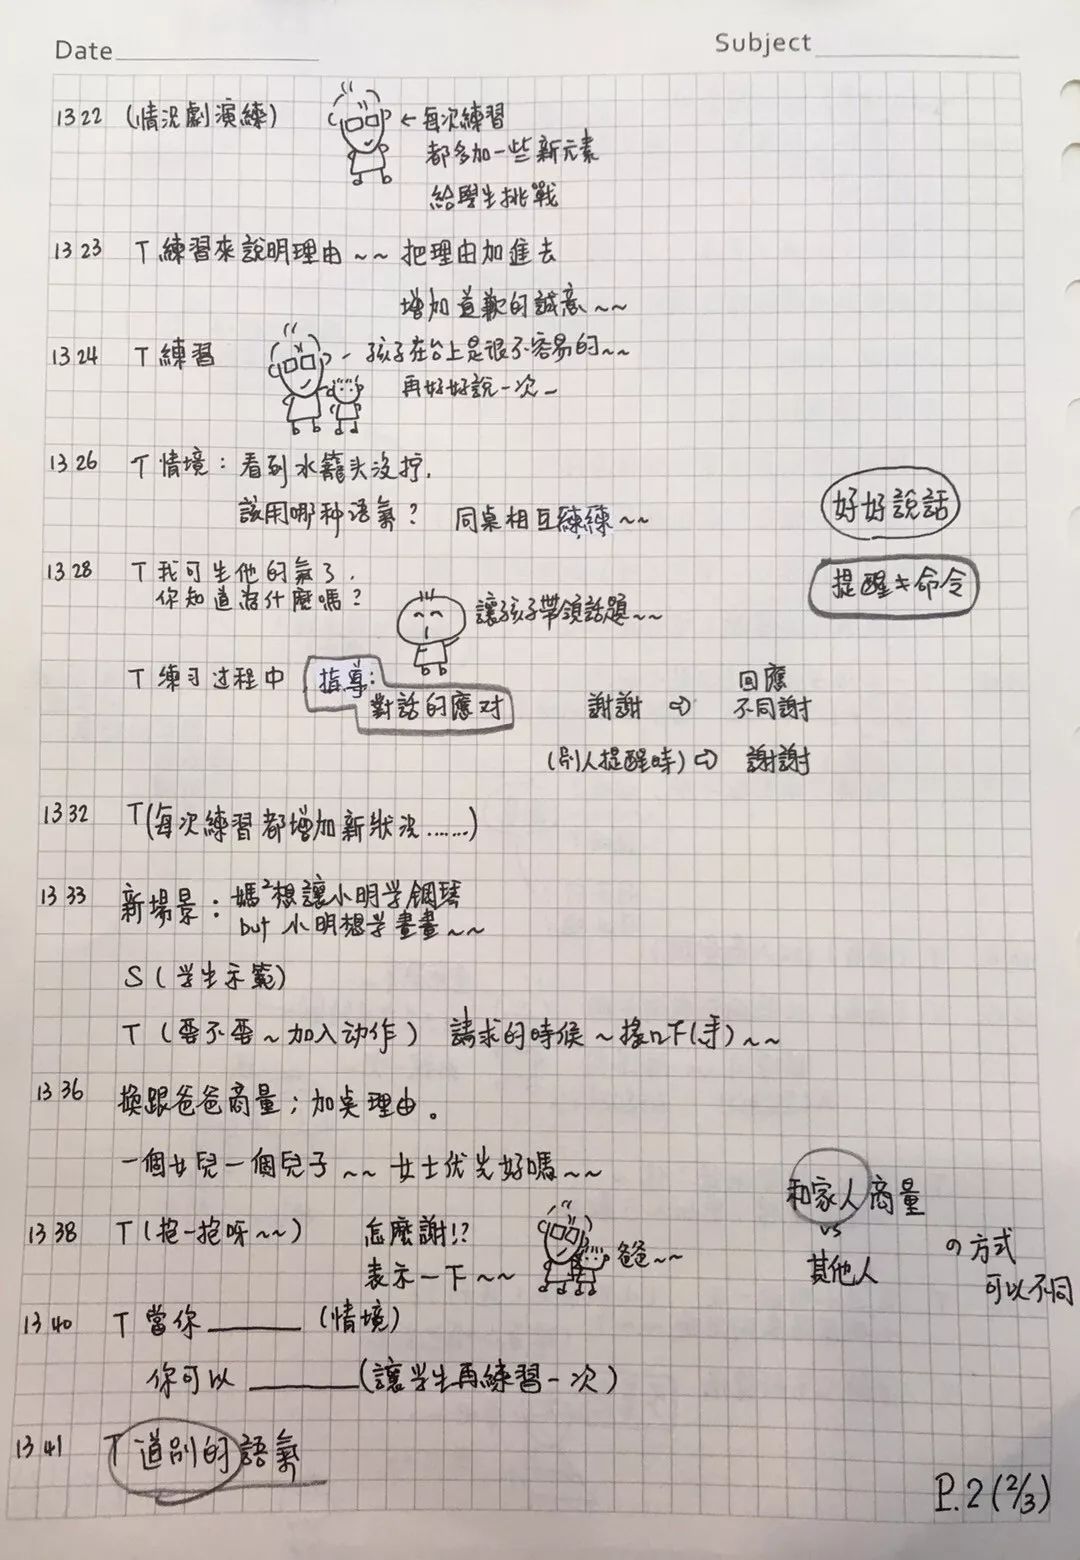 Date
Subject
1322 (情況劇演練)
←每次練習
都多加一些新元素
給學生挑戰
1323 T 練習來說明理由~~ 把理由加進去
增加道歉的誠意~~
1324 T 練習
- 孩子在台上是很不容易的~~
再好好說一次-
1326 T 情境：看到水籠头沒拧.
該用哪种语氣？ 同桌相互練練~~
好好說話
提醒≠命令
1328 T 我可生他的氣了.
你知道為什麼嗎？
讓孩子帶領話題~~
T 練习过程中 指導：
對話的應对
謝謝 ⇨ 回應
不同謝
(別人提醒時) ⇨ 謝謝
1332 T(每次練習都增加新狀況……)
1333 新場景：媽²想讓小明学鋼琴
but 小明想学畫畫~~
S (学生示範)
T (要不要~加入动作) 請求的時候~搖以下(手)~~
1336 換跟爸爸商量；加臭理由。
一個女兒一個兒子~~ 女士优先好嗎~~
和家人商量
vs
其他人
の方式
可以不同
1338 T(抱一抱呀~~) 怎麼謝!?
表示一下~~
爸爸~~
1340 T 當你______ (情境)
你可以 ______(讓学生再練習一次)
1341 T 道別的語氣
P.2 (2/3)